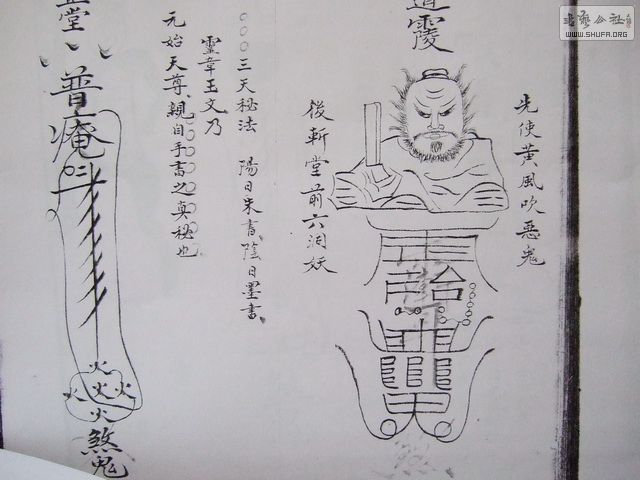 道靈
先使黄風吹惡鬼
後斬堂前六洞妖
三天秘法 陽日朱書陰日墨書
靈章玉文乃
元始天尊親自手書之真秘也
堂
普庵
火
火火火
火
煞鬼
WWW.SHUFA.ORG